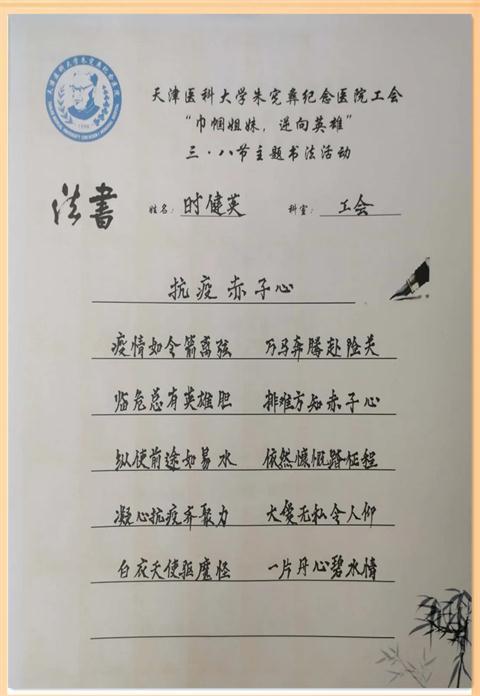 天津医科大学朱宪彝纪念医院工会
“巾帼姐妹，逆向英雄”
三·八节主题书法活动
法書
姓名：时健英 科室：工会
抗疫赤子心
疫情如令箭离弦 万马奔腾赴险关
临危总有英雄胆 排难方知赤子心
纵使前途如易水 依然慷慨踏征程
凝心抗疫齐聚力 大爱无私令人仰
白衣天使驱魔怪 一片丹心碧水情